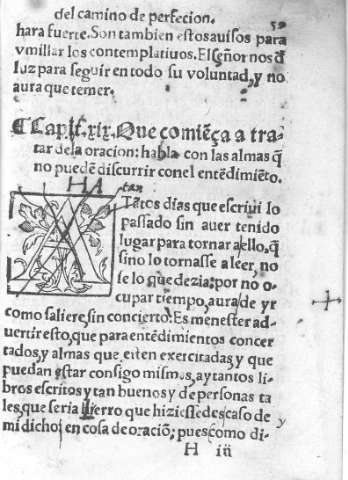 del camino de perfecion. 59
hara fuerte. Son tambien estos auisos para
vmillar los contemplatiuos. El señor nos dͤ
luz para seguir en todo su voluntad, y no
aura que temer.
¶ Capit. xix. Que comiẽça a tra-
tar de la oracion: habla con las almas q̃
no puedẽ discurrir con el entẽdimiẽto.
HA tan
TAtos dias que escriui lo
passado sin auer tenido
lugar para tornar a ello, q̃
sino lo tornasse a leer, no
se lo que dezia: por no o-
cupar tiempo, aura de yr
como saliere, sin concierto: Es menester ad-
uertir esto, que para entẽdimientos concer
tados, y almas que esten exercitadas y que
puedan estar consigo mismas, ay tantos li-
bros escritos y tan buenos y de personas ta
les, que seria yerro que hiziessedes caso de
mi dicho en cosa de oraciõ; pues como di- y
H iii